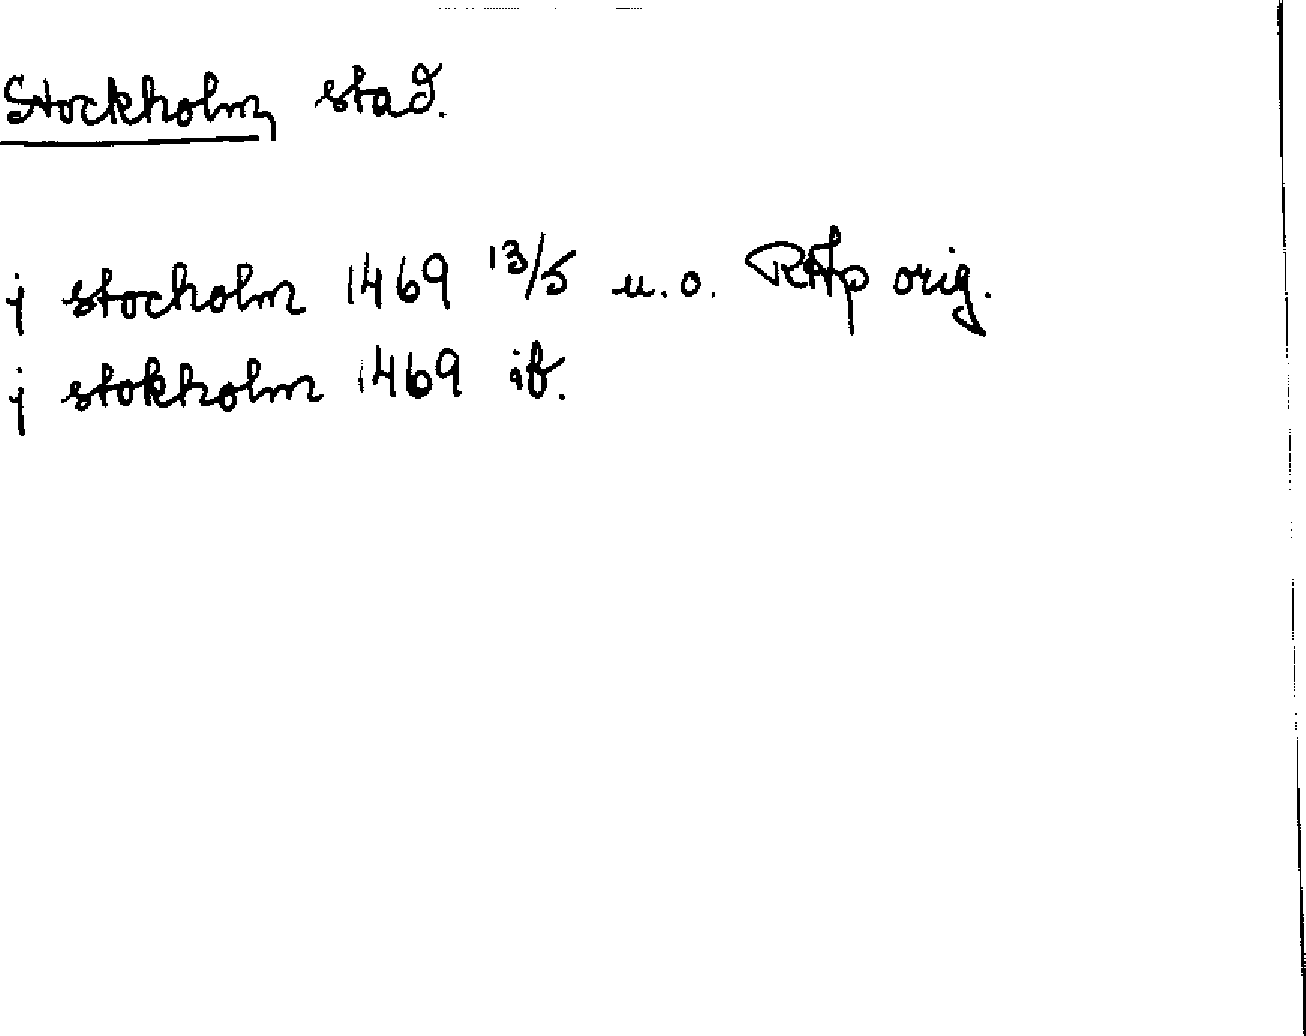 Stockholm, stad.
j stocholm 1469 13/5 u.o. RAp orig.
j stokholm 1469 ib.